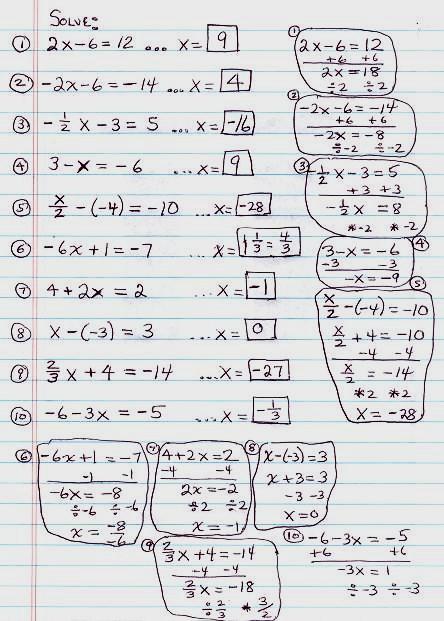 SOLVE:
① 2x-6=12 ... x= 9
② -2x-6=-14 ... x= 4
③ -1/2 x-3=5 ... x= -16
④ 3-x=-6 ... x= 9
⑤ x/2 -(-4)=-10 ... x= -28
⑥ -6x+1=-7 ... x= 1 1/3 = 4/3
⑦ 4+2x=2 ... x= -1
⑧ x-(-3)=3 ... x= 0
⑨ 2/3 x+4=-14 ... x= -27
⑩ -6-3x=-5 ... x= -1/3
①
2x-6=12
+6 +6
2x=18
÷2 ÷2
②
-2x-6=-14
+6 +6
-2x=-8
÷-2 ÷-2
③
-1/2 x-3=5
+3 +3
-1/2 x=8
*-2 *-2
④
3-x=-6
-3 -3
-x=-9
⑤
x/2 -(-4)=-10
x/2 +4=-10
-4 -4
x/2 =-14
*2 *2
x=-28
⑥
-6x+1=-7
-1 -1
-6x=-8
÷-6 ÷-6
x=-8/-6
⑦
4+2x=2
-4 -4
2x=-2
÷2 ÷2
x=-1
⑧
x-(-3)=3
x+3=3
-3 -3
x=0
⑨
2/3 x+4=-14
-4 -4
2/3 x=-18
÷2/3 *3/2
⑩
-6-3x=-5
+6 +6
-3x=1
÷-3 ÷-3